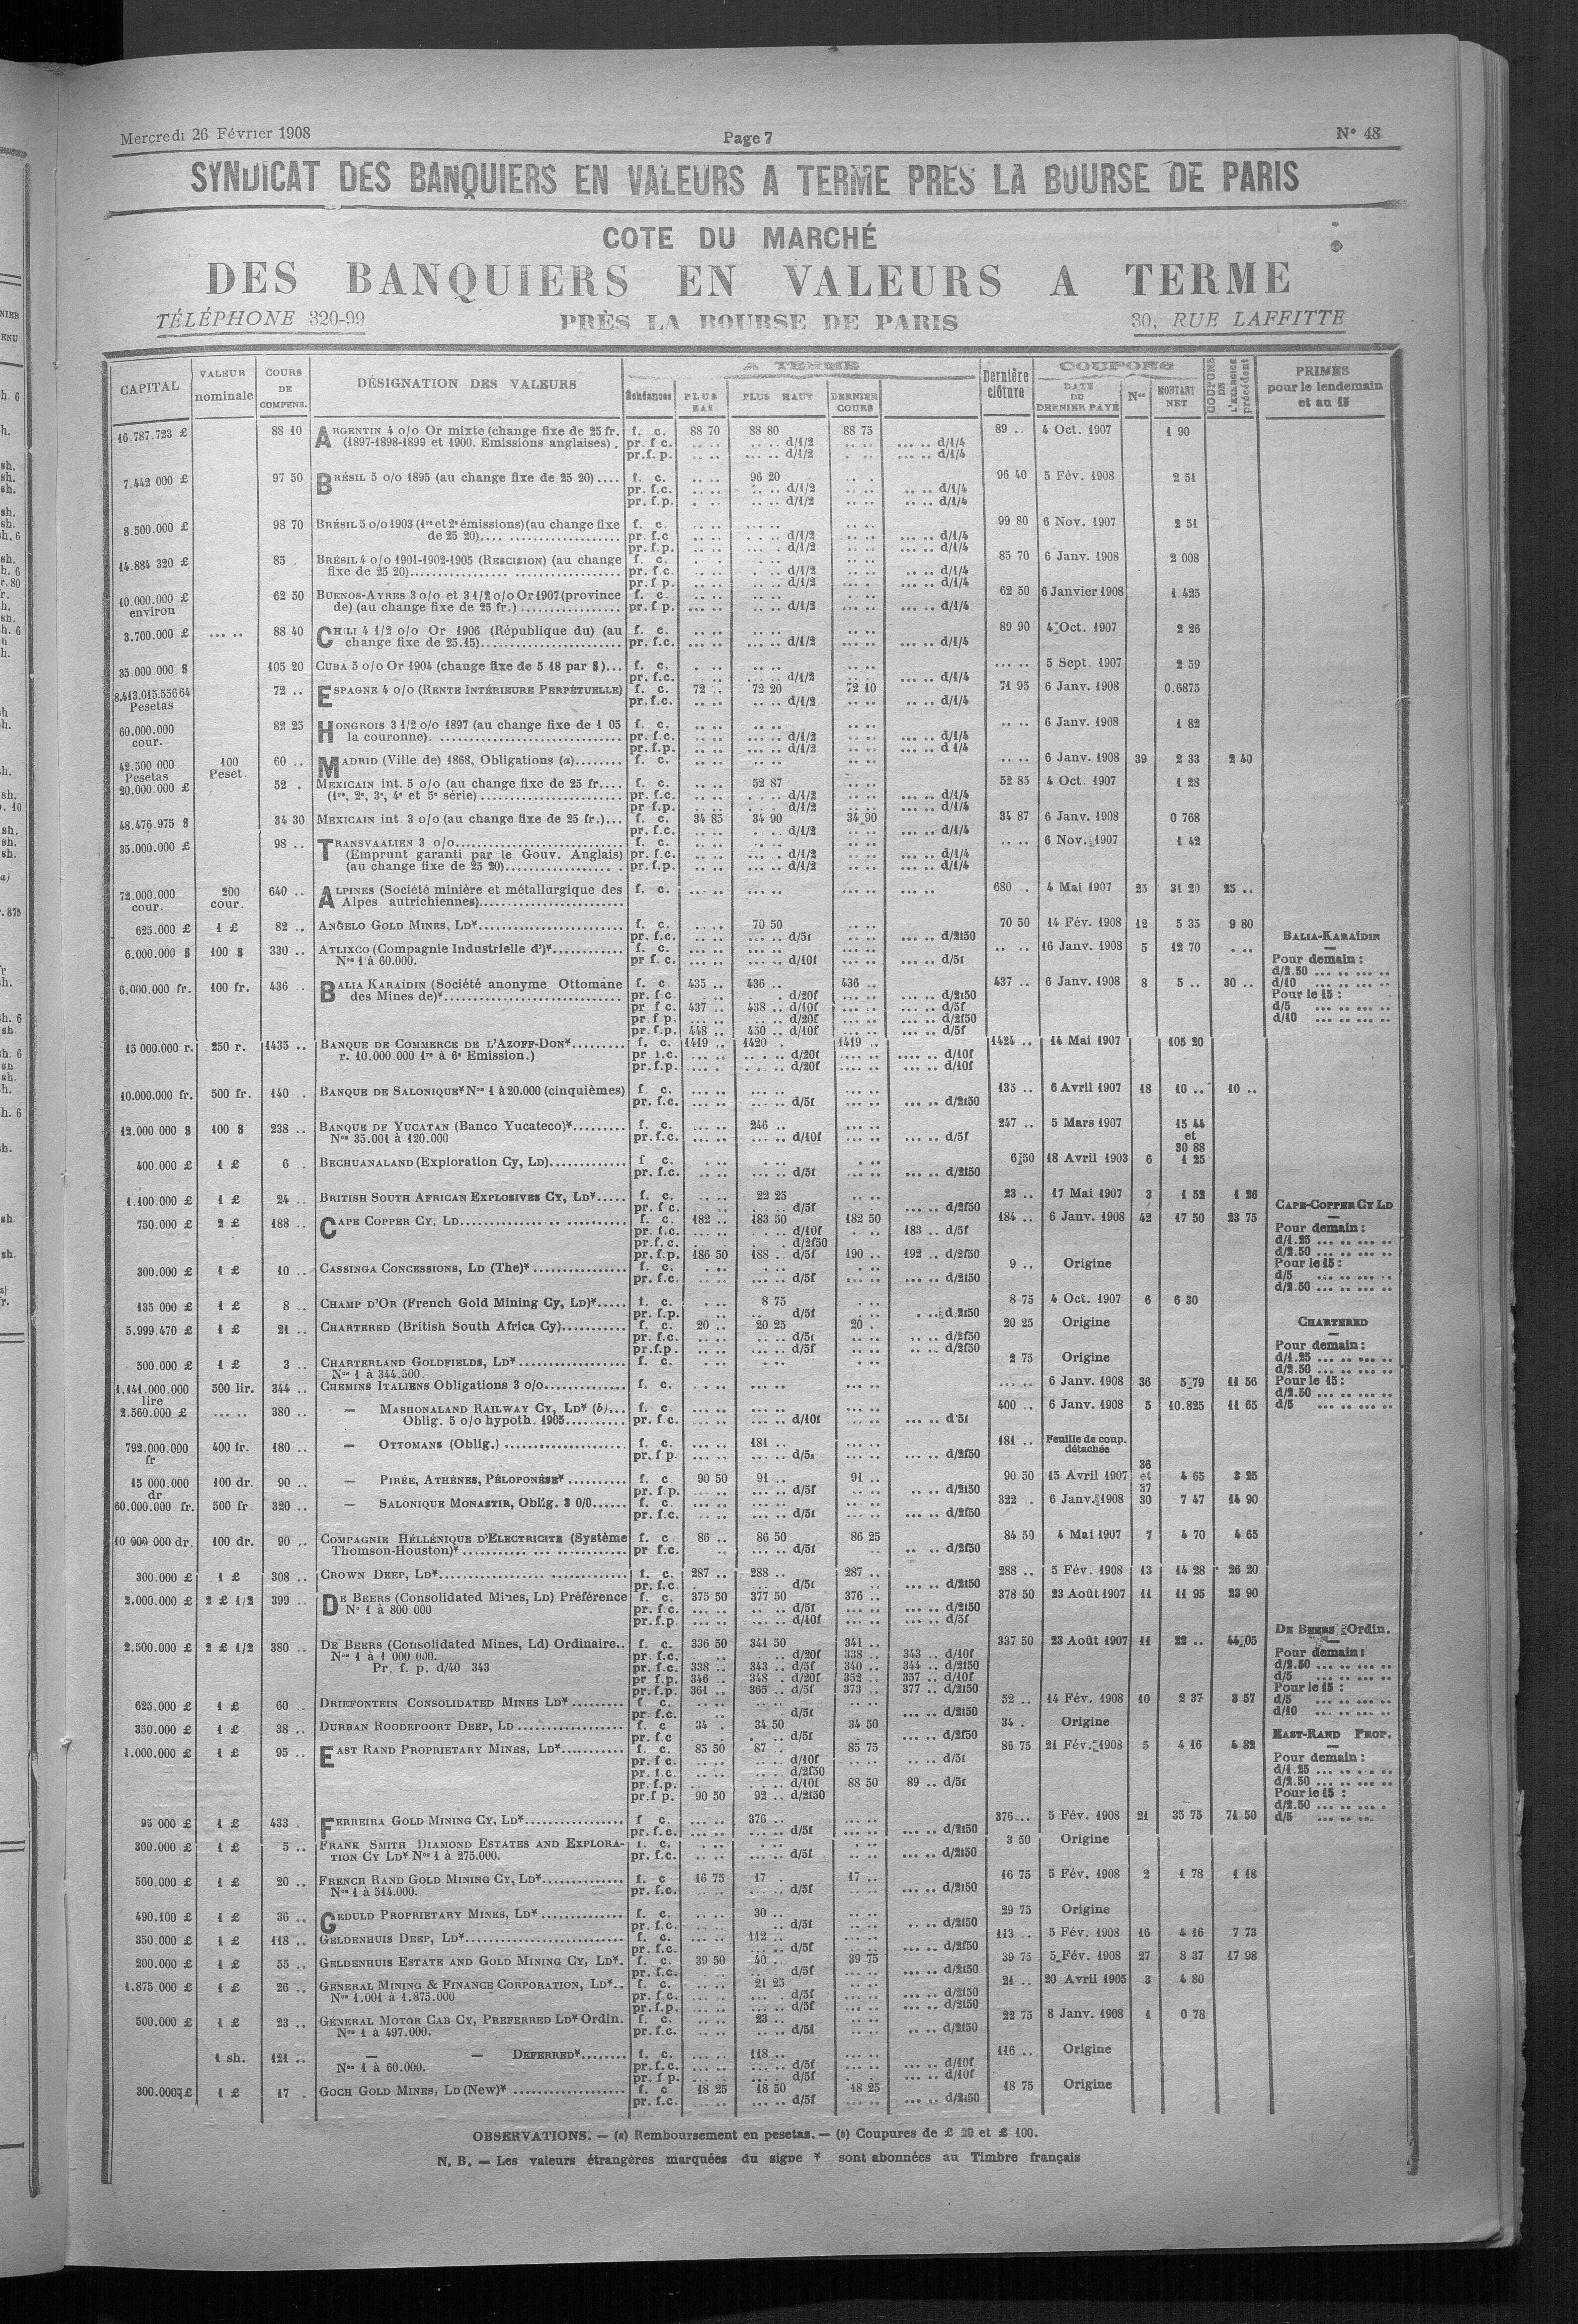 Mercredi 26 Février 1908
Page 7
N° 48
SYNDICAT DES BANQUIERS EN VALEURS A TERME PRES LA BOURSE DE PARIS
COTE DU MARCHÉ
DES BANQUIERS EN VALEURS A TERME
TÉLÉPHONE 320-99 PRÈS LA BOURSE DE PARIS 30, RUE LAFFITTE
CAPITAL
VALEUR nominale
COURS DE COMPENS.
DÉSIGNATION DES VALEURS
A TERME
Échéances
PLUS BAS
PLUS HAUT
DERNIER COURS
Dernière clôture
COUPONS
DATE DU DERNIER PAYÉ
Nos
MONTANT NET
COUPONS DE L'EXERCICE précédent
PRIMES pour le lendemain et au 15
16.787.723 £ 88 10 ARGENTIN 4 o/o Or mixte (change fixe de 25 fr. f. c. 88 70 88 80 88 75 89 .. 4 Oct. 1907 1 90
(1897-1898-1899 et 1900. Emissions anglaises) . pr. f c. d/1/2 d/1/4
pr.f. p. d/1/2 d/1/4
7.442 000 £ 97 50 BRÉSIL 5 o/o 1895 (au change fixe de 25 20).... f. c. 96 20 96 40 5 Fév. 1908 2 51
pr. f.c. d/1/2 d/1/4
pr. f.p. d/1/2 d/1/4
8.500.000 £ 98 70 BRÉSIL 5 o/o 1903 (1re et 2e émissions)(au change fixe f. c. 99 80 6 Nov. 1907 2 51
de 25 20).... pr. f.c d/1/2 d/1/4
pr. f.p. d/1/2 d/1/4
14.884 320 £ 85 . BRÉSIL 4 o/o 1901-1902-1905 (RESCISION) (au change f. c. 85 70 6 Janv. 1908 2 008
fixe de 25 20).... pr. f.c. d/1/2 d/1/4
pr. f p. d/1/2 d/1/4
10.000.000 £ environ 62 50 BUENOS-AYRES 3 o/o et 3 1/2 o/o Or 1907 (province f. c. 62 50 6 Janvier 1908 1.425
de) (au change fixe de 25 fr.) .... pr. f p. d/1/2 d/1/4
3.700.000 £ 88 40 CHILI 4 1/2 o/o Or 1906 (République du) (au f. c. 89 90 4 Oct. 1907 2 26
change fixe de 25.15).... pr. f.c. d/1/2 d/1/4
35 000.000 $ 105 20 CUBA 5 o/o Or 1904 (change fixe de 5 18 par $)... f. c. 5 Sept. 1907 2 59
pr. f.c. d/1/2 d/1/4
8.413.015.556 64 Pesetas 72 .. ESPAGNE 4 o/o (RENTE INTÉRIEURE PERPÉTUELLE) f. c. 72 .. 72 20 72 10 71 95 6 Janv. 1908 0.6875
pr. f.c. d/1/2 d/1/4
60.000.000 cour. 82 25 HONGROIS 3 1/2 o/o 1897 (au change fixe de 1 05 f. c. 6 Janv. 1908 1 82
la couronne). .... pr. f.c. d/1/2 d/1/4
pr. f.p. d/1/2 d 1/4
42.500 000 Pesetas 100 Peset. 60 .. MADRID (Ville de) 1868, Obligations (a)........ f. c. 6 Janv. 1908 39 2 33 2 40
20.000 000 £ 52 . MEXICAIN int. 5 o/o (au change fixe de 25 fr.... f. c. 52 87 52 85 4 Oct. 1907 1 28
(1re, 2e, 3e, 4e et 5e série) .... pr. f.c. d/1/2 d/1/4
pr f.p. d/1/2 d/1/4
48.476.975 $ 34 30 MEXICAIN int. 3 o/o (au change fixe de 25 fr.)... f. c. 34 85 34 90 34 90 34 87 6 Janv. 1908 0 768
pr. f.c. d/1/2 d/1/4
35.000.000 £ 98 .. TRANSVAALIEN 3 o/o.... f. c. 6 Nov. 1907 1 42
(Emprunt garanti par le Gouv. Anglais) pr. f.c. d/1/2 d/1/4
(au change fixe de 25 20).... pr. f.p. d/1/2 d/1/4
72.000.000 cour. 200 cour. 640 .. ALPINES (Société minière et métallurgique des f. c. 680 .. 4 Mai 1907 25 31 20 25 ..
Alpes autrichiennes)....
625.000 £ 1 £ 82 .. ANGELO GOLD MINES, LD*.... f. c. 70 50 70 50 14 Fév. 1908 12 5 35 9 80
pr. f.c. d/5f d/2f50
6.000.000 $ 100 $ 330 .. ATLIXCO (Compagnie Industrielle d')*.... f. c. 16 Janv. 1908 5 12 70
Nos 1 à 60.000. pr f. c. d/10f d/5f
6.000.000 fr. 100 fr. 436 .. BALIA KARAÏDIN (Société anonyme Ottomane f. c 435 .. 436 .. 436 .. 437 .. 6 Janv. 1908 8 5 .. 30 ..
des Mines de)*.... pr. f c. d/20f d/2f50
pr f c. 437 .. 438 .. d/10f d/5f
pr f p. d/20f d/2f50
pr. f.p. 448 .. 450 .. d/10f d/5f
15 000.000 r. 250 r. 1435 .. BANQUE DE COMMERCE DE L'AZOFF-DON*.... f. c. 1419 .. 1420 . 1419 .. 1424 .. 14 Mai 1907 105 20
r. 10.000 000 1re à 6e Emission.) pr f.c. d/20f d/10f
pr. f.p. d/20f d/10f
10.000.000 fr. 500 fr. 140 .. BANQUE DE SALONIQUE* Nos 1 à 20.000 (cinquièmes) f. c. 135 .. 6 Avril 1907 18 10 .. 10 ..
pr. f.c. d/5f d/2f50
12.000 000 $ 100 $ 238 .. BANQUE DE YUCATAN (Banco Yucateco)*.... f. c. 246 .. 247 .. 5 Mars 1907 15 44 et 30 88
Nos 35.001 à 120.000 pr. f.c. d/10f d/5f
400.000 £ 1 £ 6 .. BECHUANALAND (Exploration Cy, LD).... f c. 6 50 18 Avril 1903 6 1 25
pr. f.c. d/5f d/2f50
1.100.000 £ 1 £ 24 .. BRITISH SOUTH AFRICAN EXPLOSIVES CY, LD*.... f. c. 22 25 23 .. 17 Mai 1907 3 1 52 1 26
pr. f c. d/5f d/2f50
750.000 £ 2 £ 188 .. CAPE COPPER CY, LD.... f. c. 182 .. 183 50 182 50 184 .. 6 Janv. 1908 42 17 50 23 75
pr. f.c. d/10f 183 .. d/5f
pr.f. c. d/2f50
pr. f.p. 186 50 188 .. d/5f 190 .. 192 .. d/2f50
300.000 £ 1 £ 10 .. CASSINGA CONCESSIONS, LD (The)*.... f. c. 9 .. Origine
pr. f.c. d/5f d/2f50
135 000 £ 1 £ 8 .. CHAMP D'OR (French Gold Mining Cy, LD)*.... f. c. 8 75 8 75 4 Oct. 1907 6 6 30
pr. f.p. d/5f d 2f50
5.999.470 £ 1 £ 21 .. CHARTERED (British South Africa Cy).... f. c. 20 .. 20 25 20 . 20 25 Origine
pr. f.c. d/5f d/2f50
pr.f.p. d/5f d/2f50
500.000 £ 1 £ 3 .. CHARTERLAND GOLDFIELDS, LD*.... f. c. 2 75 Origine
Nos 1 à 344.500.
1.141.000.000 lire 500 lir. 344 .. CHEMINS ITALIENS Obligations 3 o/o.... f. c. 6 Janv. 1908 36 5 79 11 56
2.560.000 £ 380 .. — MASHONALAND RAILWAY CY, LD* (b)... f. c. 400 .. 6 Janv. 1908 5 10.825 11 65
Oblig. 5 o/o hypoth. 1905.... pr. f c. d/10f d 5f
792.000.000 fr 400 fr. 180 .. — OTTOMANS (Oblig.) .... f. c. 181 .. 181 .. Feuille de coup. détachée
pr. f.p. d/5f d/2f50
15 000.000 dr 100 dr. 90 .. — PIRÉE, ATHÈNES, PÉLOPONÈSE*.... f. c 90 50 91 .. 91 .. 90 50 15 Avril 1907 36 et 37 4 65 3 25
pr. f.p. d/5f d/2f50
60.000.000 fr. 500 fr. 320 .. — SALONIQUE MONASTIR, Oblig. 3 0/0.... f. c. 322 .. 6 Janv. 1908 30 7 47 14 90
pr. f.c. d/5f d/2f50
10 000 000 dr. 100 dr. 90 .. COMPAGNIE HELLÉNIQUE D'ELECTRICITÉ (Système f. c 86 .. 86 50 86 25 84 50 4 Mai 1907 7 4 70 4 65
Thomson-Houston)*.... pr f.c. d/5f d/2f50
300.000 £ 1 £ 308 .. CROWN DEEP, LD*.... f. c. 287 .. 288 .. 287 .. 288 .. 5 Fév. 1908 13 14 28 26 20
pr. f.c. d/5f d/2f50
2.000.000 £ 2 £ 1/2 399 .. DE BEERS (Consolidated Mines, LD) Préférence f. c. 375 50 377 50 376 .. 378 50 23 Août 1907 11 11 95 23 90
No 1 à 800 000 pr. f c. d/5f d/2f50
pr.f.p. d/10f d/5f
2.500.000 £ 2 £ 1/2 380 .. DE BEERS (Consolidated Mines, Ld) Ordinaire.. f. c. 336 50 341 50 341 .. 337 50 23 Août 1907 11 22 .. 44 05
Nos 1 à 1 000 000. pr. f.c. d/20f 338 .. 343 .. d/10f
Pr. f. p. d/40 343 pr. f.c. 338 .. 343 .. d/5f 340 .. 344 .. d/2f50
pr. f.p. 346 .. 348 . d/20f 352 .. 357 .. d/10f
pr. f.p. 361 .. 365 .. d/5f 373 .. 377 .. d/2f50
625.000 £ 1 £ 60 .. DRIEFONTEIN CONSOLIDATED MINES LD*.... f c. 52 .. 14 Fév. 1908 10 2 37 3 57
pr. f.c. d/5f d/2f50
350.000 £ 1 £ 38 .. DURBAN ROODEPOORT DEEP, LD .... f. c 34 . 34 50 34 50 34 . Origine
pr. f.c d/5f d/2f50
1.000.000 £ 1 £ 95 .. EAST RAND PROPRIETARY MINES, LD*.... f. c. 85 50 87 .. 85 75 86 75 21 Fév. 1908 5 4 16 4 82
pr. f c. d/10f d/5f
pr. f.c. d/2f50
pr. f.p. d/10f 88 50 89 .. d/5f
pr.f p. 90 50 92 .. d/2f50
95 000 £ 1 £ 433 . FERREIRA GOLD MINING CY, LD*.... f c. 376 .. 376 .. 5 Fév. 1908 21 35 75 71 50
pr. f.c. d/5f d/2f50
300.000 £ 1 £ 5 .. FRANK SMITH DIAMOND ESTATES AND EXPLORA- f. c. 3 50 Origine
TION CY LD* Nos 1 à 275.000. pr. f.c. d/5f d/2f50
560.000 £ 1 £ 20 .. FRENCH RAND GOLD MINING CY, LD*.... f. c 16 75 17 . 17 .. 16 75 5 Fév. 1908 2 1 78 1 18
Nos 1 à 514.000. pr. f.c. d/5f d/2f50
490.100 £ 1 £ 36 .. GEDULD PROPRIETARY MINES, LD*.... f. c. 30 .. 29 75 Origine
pr. f c. d/5f d/2f50
350.000 £ 1 £ 118 .. GELDENHUIS DEEP, LD*.... f. c. 112 .. 113 .. 5 Fév. 1908 16 4 16 7 73
pr. f.c. d/5f d/2f50
200.000 £ 1 £ 55 .. GELDENHUIS ESTATE AND GOLD MINING CY, LD*. f. c. 39 50 40 .. 39 75 39 75 5 Fév. 1908 27 8 37 17 98
pr. f.c. d/5f d/2f50
1.875.000 £ 1 £ 26 .. GENERAL MINING & FINANCE CORPORATION, LD*.. f. c. 21 25 21 .. 20 Avril 1905 3 4 80
Nos 1.001 à 1.875.000 pr. f c. d/5f d/2f50
pr. f.p. d/5f d/2f50
500.000 £ 1 £ 23 .. GENERAL MOTOR CAB CY, PREFERRED LD* Ordin. f. c. 23 .. 22 75 8 Janv. 1908 1 0 78
Nos 1 à 497.000. pr. f.c. d/5f d/2f50
1 sh. 121 .. — — DEFERRED*.... f. c. 118 .. 116 .. Origine
Nos 1 à 60.000. pr. f.c. d/5f d/10f
pr. f p. d/5f d/10f
300.000 £ 1 £ 17 . GOCH GOLD MINES, LD (New)* .... f. c 18 25 18 50 18 25 18 75 Origine
pr. f.c. d/5f d/2f50
BALIA-KARAÏDIN
Pour demain :
d/2.50 ... .. ... ..
d/10 ... .. ... ..
Pour le 15 :
d/5 ... .. ... ..
d/10 ... .. ... ..
CAPE-COPPER CY LD
Pour demain :
d/1.25 ... .. ... ..
d/2.50 ... .. ... ..
Pour le 15 :
d/5 ... .. ... ..
d/2.50 ... .. ... ..
CHARTERED
Pour demain :
d/1.25 ... .. ... ..
d/2.50 ... .. ... ..
Pour le 15 :
d/2.50 ... .. ... ..
d/5 ... .. ... ..
DE BEERS Ordin.
Pour demain :
d/2.50 ... .. ... ..
d/5 ... .. ... ..
Pour le 15 :
d/5 ... .. ... ..
d/10 ... .. ... ..
EAST-RAND PROP.
Pour demain :
d/1.25 ... .. ... ..
d/2.50 ... .. ... ..
Pour le 15 :
d/2.50 ... .. ... .
d/5 ... .. ... ..
OBSERVATIONS. — (a) Remboursement en pesetas. — (b) Coupures de £ 20 et £ 100.
N. B. — Les valeurs étrangères marquées du signe * sont abonnées au Timbre français